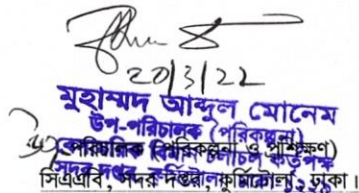 20/3/22
মুহাম্মদ আব্দুল মোনেম
উপ-পরিচালক (পরিকল্পনা)
পরিচালক (পরিকল্পনা ও প্রশিক্ষণ)
বেসামরিক বিমান চলাচল কর্তৃপক্ষ
সিএএবি, সদর দপ্তর, কুর্মিটোলা, ঢাকা।